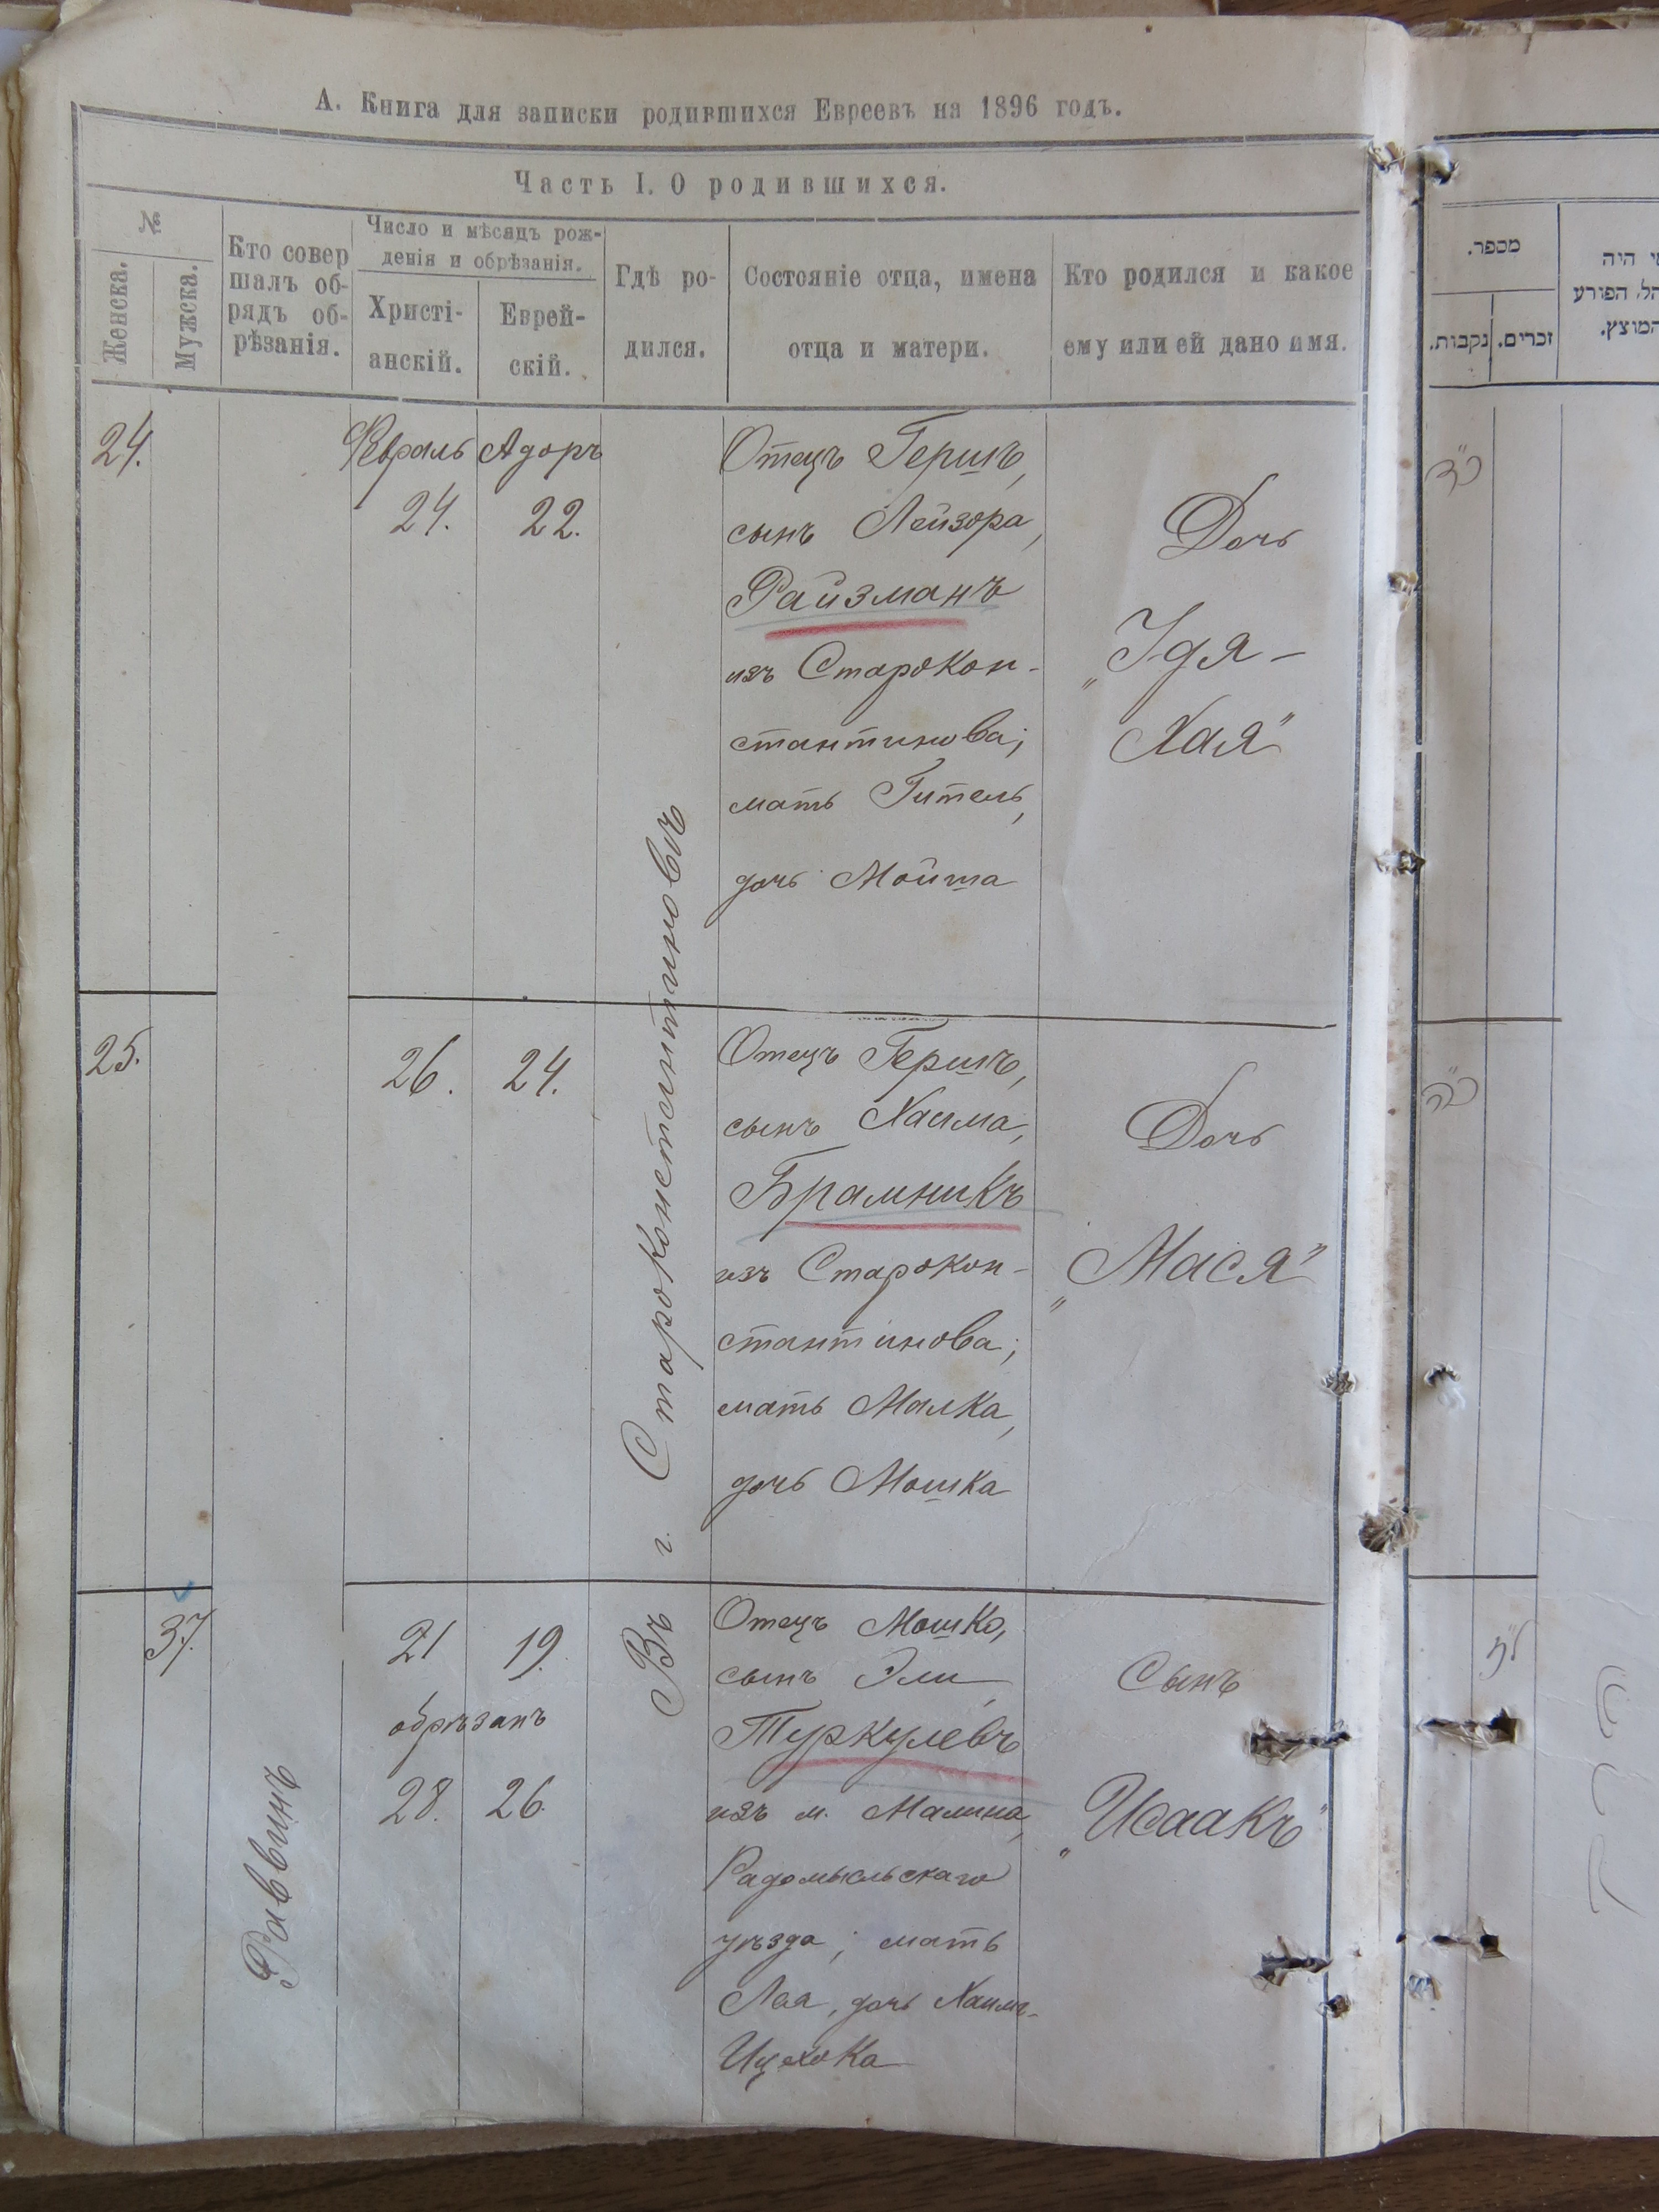 А. Книга для записки родившихся Евреевъ на 1896 годъ.
Часть I. О родившихся.
№
Женска.
Мужска.
Кто совер
шалъ об-
рядъ об-
рѣзанія.
Число и мѣсяцъ рож-
денія и обрѣзанія.
Христі-
анскій.
Еврей-
скій.
Гдѣ ро-
дился.
Состояніе отца, имена
отца и матери.
Кто родился и какое
ему или ей дано имя.
24.
Февраль
24.
Адоръ
22.
Отецъ Гершъ,
сынъ Лейзора,
Райзманъ
изъ Старокон-
стантинова;
мать Гитель,
дочь Мойша
Дочь
„Идя-
Хая"
25.
26.
24.
Отецъ Гершъ,
сынъ Хаима,
Брамникъ
изъ Старокон-
стантинова;
мать Малка,
дочь Мошка
Дочь
„Мася"
Въ г. Староконстантиновъ
37.
Раввинъ
21
19.
обрѣзанъ
28.
26.
Отецъ Мошко,
сынъ Эли,
Туркулевъ
изъ м. Малина,
Радомысльскаго
уѣзда; мать
Лая, дочь Хаимъ-
Ицхока
Сынъ
„Исаакъ"
מספר.
נקבות.
זכרים.
י היה
הל הפורע
המוצץ.
כ"ד
כ"ה
ל"ז